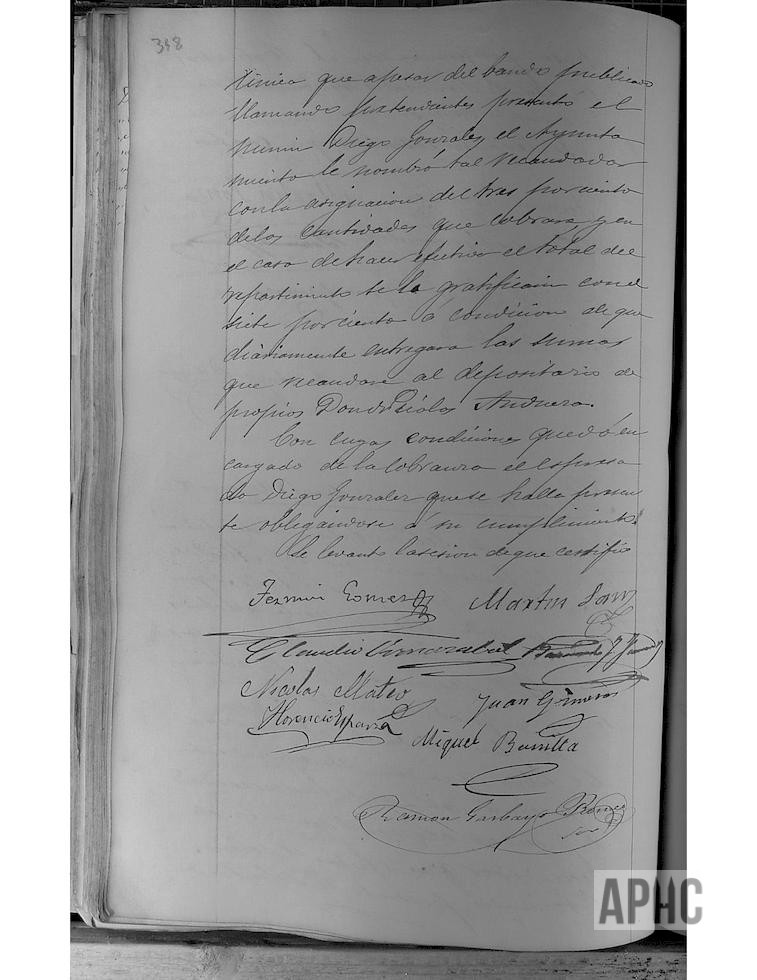 348
única que apesar del bando publicado
llamando pretendientes presentó el
Diego Gonzalez el Ayunta
miento le nombró tal recaudador
con la asignacion del tres por ciento
delos cantidades que cobrase y en
el caso de hacer efectivo el total del
repartimiento se la gratificain con el
siete por ciento á condicion de que
diariamente entregara las sumas
que recaudare al depositario de
propios Don Andueza.
Con cuyas condiciones quedó en
cargado de la cobranza el espresa
do Diego Gonzalez que se halla presen
te obligándose á su cumplimiento.
Se levantó la sesion de que certifico
Fermin Gomez Martin Sanz
Claudio
Nicolas Mateo Juan Gimenez
Florencio Esparza
Miguel Bonilla
Ramon Garbayo
APHC